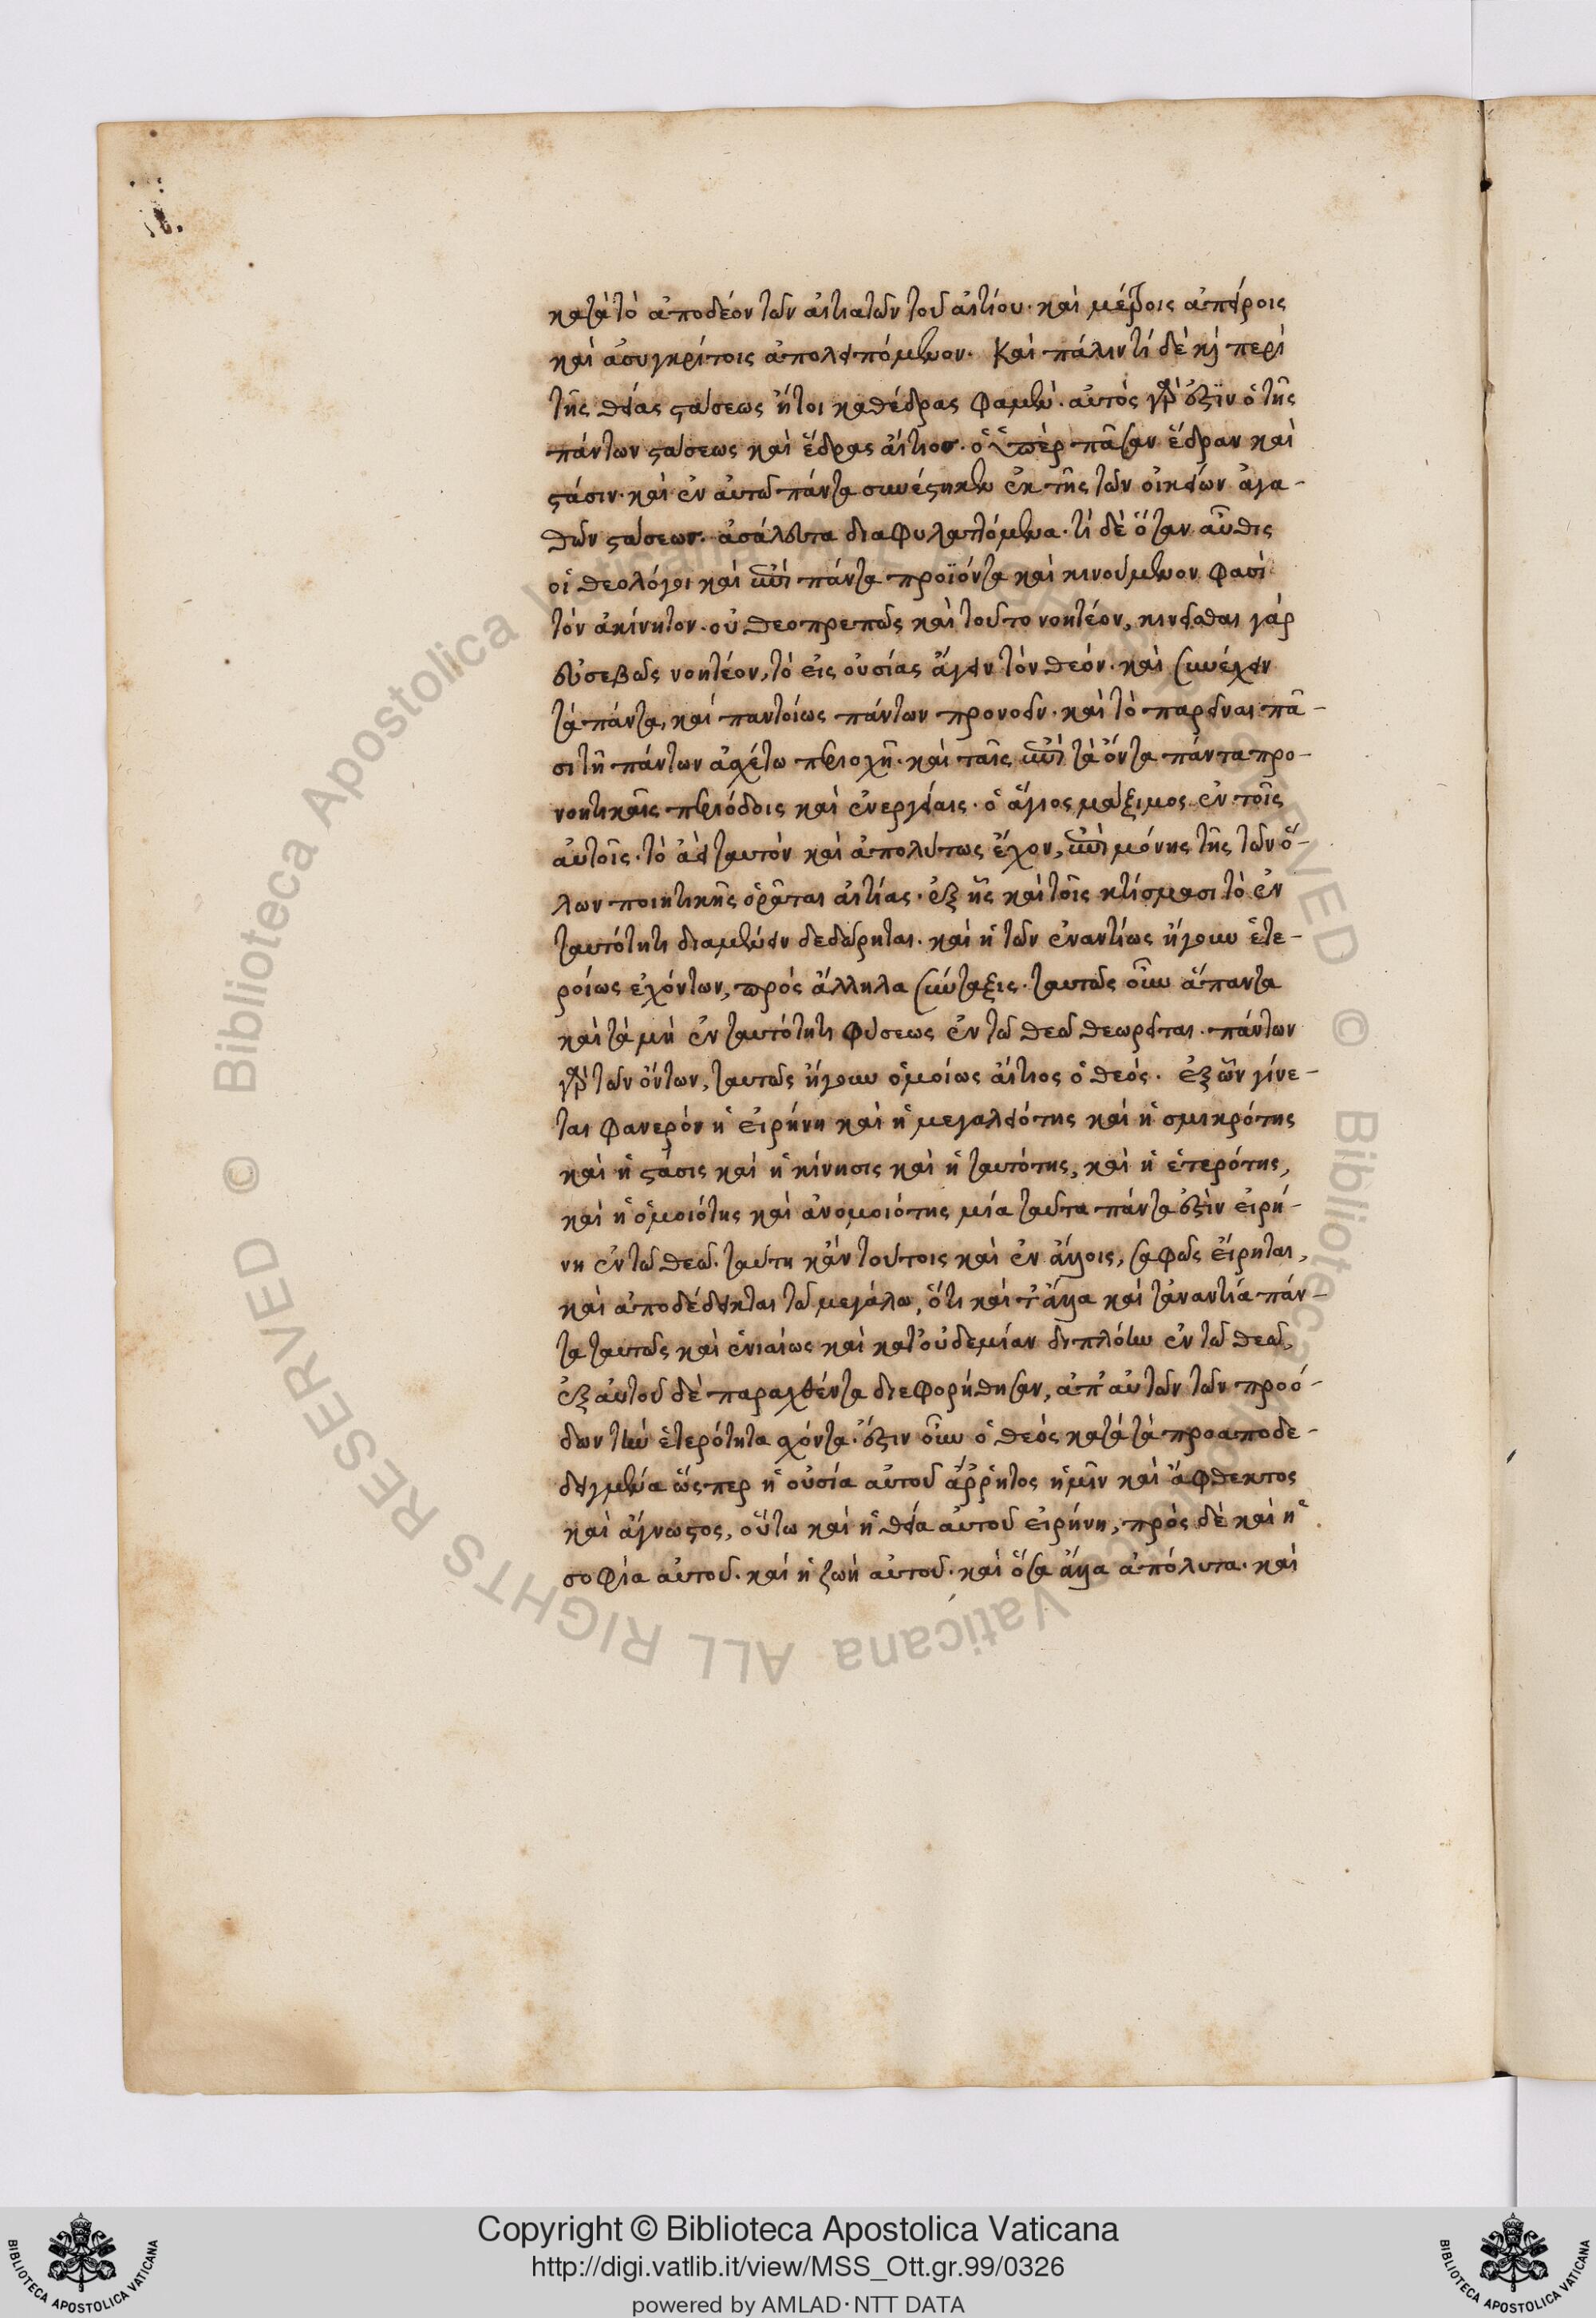 κατὰ τὸ ἀποδέον τῶν αἰτιατῶν τοῦ αἰτίου· καὶ μέτροις ἀπείροις
καὶ ἀσυγκρίτοις ἀπολειπόμενον. Καὶ πάλιν τί δὲ καὶ περὶ
τῆς θείας στάσεως ἤτοι καθέδρας φαμὲν· αὐτός γάρ ἐστϊν ὁ τῆς
πάντων στάσεως καὶ ἕδρας αἴτιος· ὁ ὑπὲρ πᾶσαν ἕδραν καὶ
στάσιν· καὶ ἐν αὐτῶ πάντα συνέστηκεν ἐκ τῆς τῶν οἰκείων ἀγα-
θῶν στάσεως· ἀσάλευτα διαφυλαττόμενα· τί δὲ ὅταν αὖθις
οἱ θεολόγοι καὶ ἐπὶ πάντα προϊόντα καὶ κινούμενον φασὶ
τὸν ἀκίνητον· οὐ θεοπρεπῶς καὶ τοῦτο νοητέον, κινεῖσθαι γάρ
εὐσεβῶς νοητέον, τὸ εἰς οὐσίας ἄγειν τὸν θεόν· καὶ συνέχειν
τὰ πάντα, καὶ παντοίως πάντων προνοεῖν· καὶ τὸ παρεῖναι πᾶ-
σι τῆ πάντων ἀσχέτω περιοχῆ· καὶ ταῖς ἐπὶ τὰ ὄντα πάντα προ-
νοητικαῖς περιόδοις καὶ ἐνεργείαις· ὁ ἅγιος μάξιμος ἐν τοῖς
αὐτοῖς· τὸ ἀεὶ ταυτὸν καὶ ἀπολύτως ἔχον, ἐπὶ μόνης τῆς τῶν ὅ-
λων ποιητικῆς ὁρᾶται αἰτίας· ἐξ ἧς καὶ τοῖς κτίσμασι τὸ ἐν
ταυτότητι διαμένειν δεδώρηται· καὶ ἡ τῶν ἐναντίως ἤγουν ἑτε-
ροίως ἐχόντων, πρὸς ἄλληλα σύνταξις· ταυτῶς οὖν ἅπαντα
καὶ τὰ μὴ ἐν ταυτότητι φύσεως ἐν τῶ θεῶ θεωρεῖται· πάντων
γὰρ τῶν ὄντων, ταυτῶς ἤγουν ὁμοίως αἴτιος ὁ θεός. ἐξ ὧν γίνε-
ται φανερὸν ἡ εἰρήνη καὶ ἡ μεγαλειότης καὶ ἡ σμικρότης
καὶ ἡ στάσις καὶ ἡ κίνησις καὶ ἡ ταυτότης, καὶ ἡ ἑτερότης,
καὶ ἡ ὁμοιότης καὶ ἀνομοιότης μία ταῦτα πάντα ἐστὶν εἰρή-
νη ἐν τῶ θεῶ· ταύτη κἀν τούτοις καὶ ἐν ἄλλοις, σαφῶς εἴρηται,
καὶ ἀποδέδεικται τῶ μεγάλω, ὅτι καὶ τἄλλα καὶ τἀναντία πάν-
τα ταυτῶς καὶ ἑνιαίως καὶ κατ' οὐδεμίαν διπλόην ἐν τῶ θεῶ,
ἐξ αὐτοῦ δὲ παραχθέντα διεφορήθησαν, ἀπ' αὐτῶν τῶν προό-
δων τὴν ἑτερότητα σχόντα· ἔστιν οὖν ὁ θεὸς κατὰ τὰ προαποδε-
δειγμένα ὥςπερ ἡ οὐσία αὐτοῦ ἄῤῥητος ἡμῖν καὶ ἄφθεκτος
καὶ ἄγνωστος, οὕτω καὶ ἡ θεία αὐτοῦ εἰρήνη, πρὸς δὲ καὶ ἡ
σοφία αὐτοῦ· καὶ ἡ ζωὴ αὐτοῦ· καὶ ὅσα ἄλλα ἀπόλυτα· καὶ
© Biblioteca Apostolica Vaticana ALL RIGHTS RESERVED
© Biblioteca Apostolica Vaticana ALL RIGHTS RESERVED
Copyright © Biblioteca Apostolica Vaticana
http://digi.vatlib.it/view/MSS_Ott.gr.99/0326
powered by AMLAD·NTT DATA
BIBLIOTECA APOSTOLICA VATICANA
BIBLIOTECA APOSTOLICA VATICANA